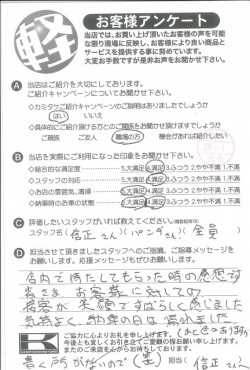 軽
お客様アンケート
当店では、お買い上げ頂いたお客様の声を可能な
限り現場に反映し、お客様により良い商品と
サービスを提供する事に努めています。
大変お手数ですが是非お声をお聞かせ下さい。
A 当店はご紹介を大切にしております。
ご紹介キャンペーンについてお聞かせ下さい。
◇カミタケご紹介キャンペーンのご説明はありましたでしょうか
はい いいえ
◇具体的にご紹介頂ける方とのご関係をお聞かせ頂けますでしょうか
ご親族 ご友人 職場の方 機会があれば紹介したい
B 当店を実際にご利用になった印象をお聞かせ下さい。
◇総合的な満足度 5.大満足 4.満足 3.ふつう 2.やや不満 1.不満
◇スタッフの対応 5.大満足 4.満足 3.ふつう 2.やや不満 1.不満
◇お店の雰囲気、清掃 5.大満足 4.満足 3.ふつう 2.やや不満 1.不満
◇納車時のお車の状態 5.大満足 4.満足 3.ふつう 2.やや不満 1.不満
C 評価したいスタッフがいれば教えてください。(複数回答可)
スタッフ名( 信正さん )( パンダさん )( 全員 )
D 担当させて頂きましたスタッフへのご指摘、ご指導メッセージを
お願いします。応援メッセージもぜひお願いします。
店内で待たしてもらった時の感想です
皆さま お客様に対しての
接客が 笑顔ですばらしく感じました
気持ちよく 納車の日は
ご協力に心よりお礼を申し上げます。
今後とも宜しくお引き立てご愛顧程お願い申し上げます。
またのご来店を心よりお待ちしております。
書く所がないので 担当( 信正さん )